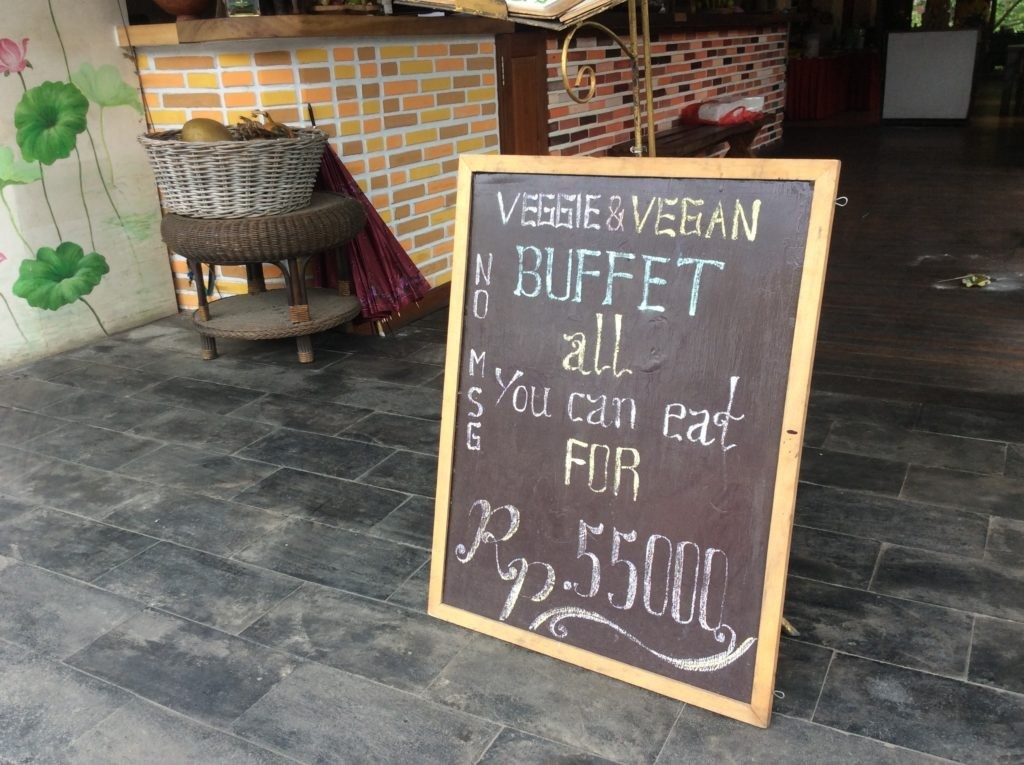 VEGGIE & VEGAN
BUFFET
all
You can eat
FOR
Rp. 55000
NO MSG